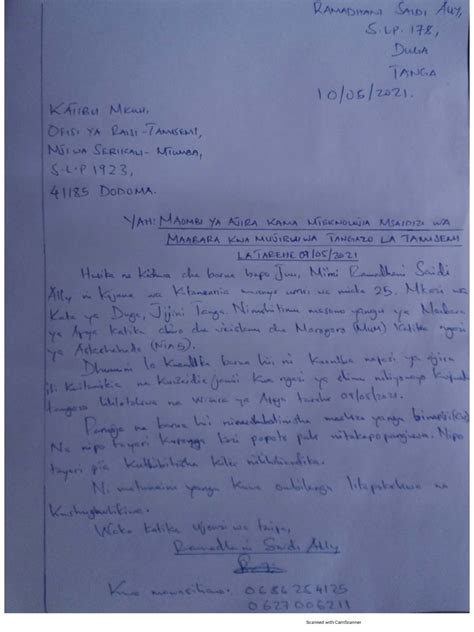 RAMADHANI SAIDI ALLY,
S.L.P. 178,
DUGA
TANGA
10/05/2021.
KATIBU MKUU,
OFISI YA RAISI-TAMISEMI,
MJI WA SERIKALI- MTUMBA,
S.L.P 1923,
41185 DODOMA.
YAH: MAOMBI YA AJIRA KAMA MTEKNOLOJIA MSAIDIZI WA
MAABARA KWA MUJIBU WA TANGAZO LA TAMISEMI
LA TAREHE 09/05/2021
Husika na kichwa cha barua hapo Juu, Mimi Ramadhani Saidi
Ally ni Kijana wa Kitanzania mwenye umri wa miaka 25. Mkazi wa
Kata ya Duga, Jijini Tanga. Nimehitimu masomo yangu ya Maabara
ya Afya Katika chuo cha Morogoro (MUM) Katika ngazi
ya Astashahada (NTA5).
Dhumuni la Kuandika barua hii, ni Kuomba nafasi ya ajira
ili Kuitumikia na jamii Kwa ngazi ya elimu niliyonayo
tangazo lililotolewa na Wizara ya Afya tarehe 09/05/2021.
Pamoja na barua hii nimeambatanisha maelezo yangu binafsi(CV)
Na nipo tayari Kufanya Kazi popote pale nitakapopangiwa. Nipo
tayari pia Kuthibitisha Kile
Ni matumaini yangu Kuwa ombi langu litapokelewa na
Kushughulikiwa.
Wako Katika Ujenzi wa taifa,
Ramadhani Saidi Ally
Kwa mawasiliano: 0686254125
0627006211
Scanned with CamScanner